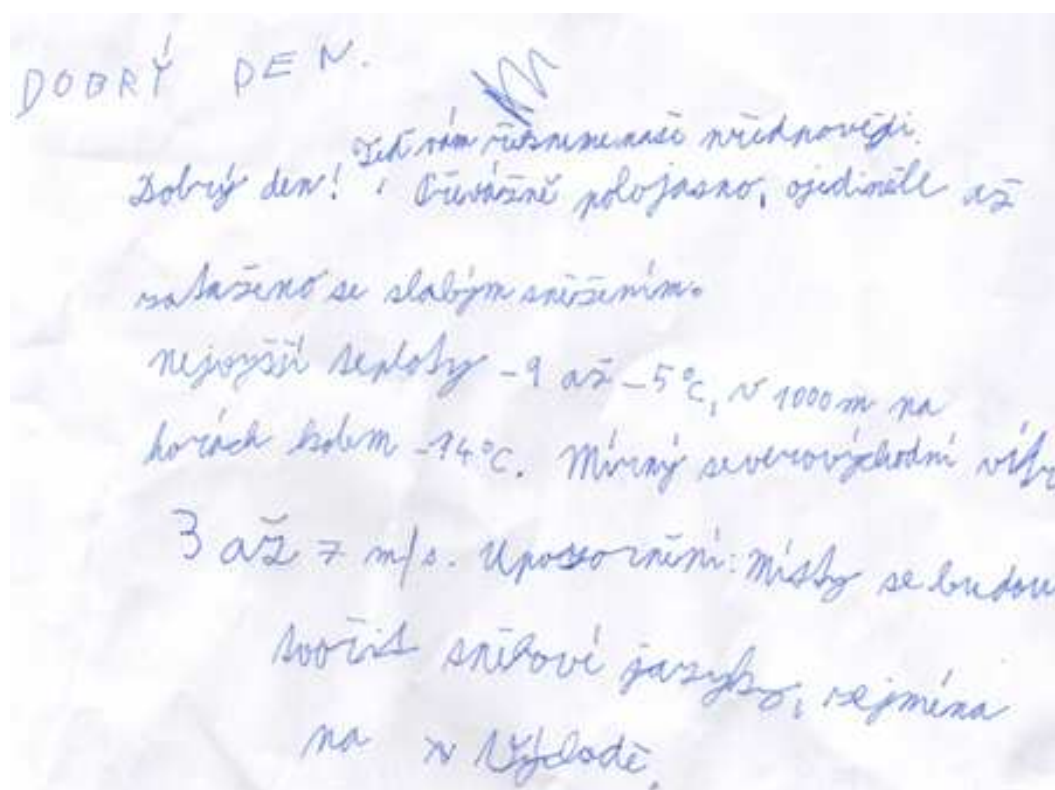 DOBRÝ DEN.
Teď vám řekneme naši předpovědi.
Dobrý den! Převážně polojasno, ojediněle až
zataženo se slabým sněžením.
nejvyšší teploty -9 až -5°C, v 1000 m na
horách kolem -14°C. Mírný severovýchodní vítr
3 až 7 m/s. Upozornění: Místy se budou
tvořit sněhové jazyky, zejména
na Východě.